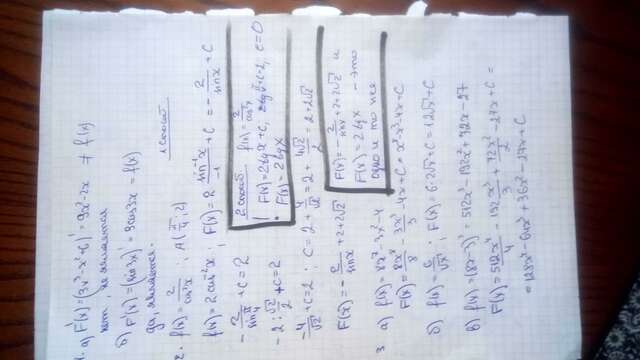 1. a) F'(x)=(3x³-x²+1)'=9x²-2x ≠ f(x)
нет, не является
б) F'(x)=(sin3x)'=3cos3x=f(x)
да, является.
1 способ
2. f(x)=2/cos²x ; A(π/4; 2)
f(x)=2cos⁻²x ; F(x)=2 sin⁻¹x/-1 +C = -2/sinx +C
-2/sin π/4 +C=2
-2: √2/2 +C=2
-4/√2 +C=2 ; C=2+4/√2 =2+4√2/2 =2+2√2
F(x)=-2/sinx +2+2√2
2 способ f(x)=2/cos²x
F(x)=2tgx+C, C=0
F(x)=2tgx
F(x)=-2/sinx +2+2√2 и
F(x)=2tgx - это
одно и то же
3 a) f(x)=8x⁷-3x²-4
F(x)=8x⁸/8 - 3x³/3 -4x+C=x⁸-x³-4x+C
б) f(x)=6/√x ; F(x)=6·2√x+C=12√x+C
в) f(x)=(8x-3)³=512x³-192x²+72x-27
F(x)=512x⁴/4 -192x³/3 +72x²/2 -27x+C=
=128x⁴-64x³+36x²-27x+C